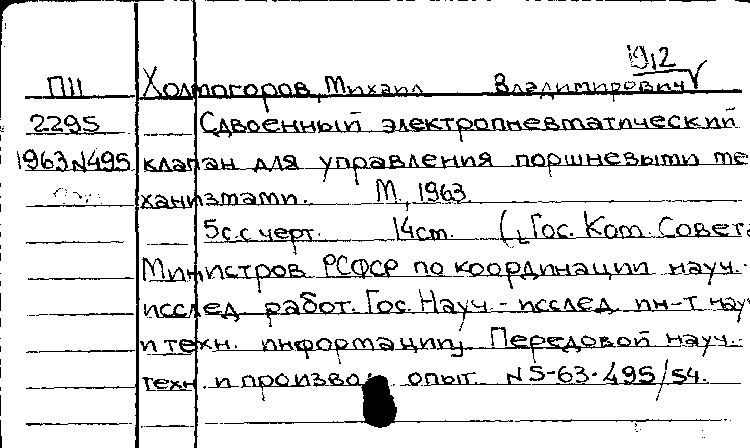 1912
П11 Холмогоров, Михаил Владимирович
2295 Сдвоенный электропневматический
1963 N495 клапан для управления поршневыми ме
ханизмами. М., 1963
5 с. с черт. 14 см. (Гос. Ком. Совета
Министров РСФСР по координации науч.-
исслед работ. Гос. Науч.-исслед. ин-т науч
и техн. информации. Передовой науч.-
техн. и произво опыт. N 5-63-495/54.